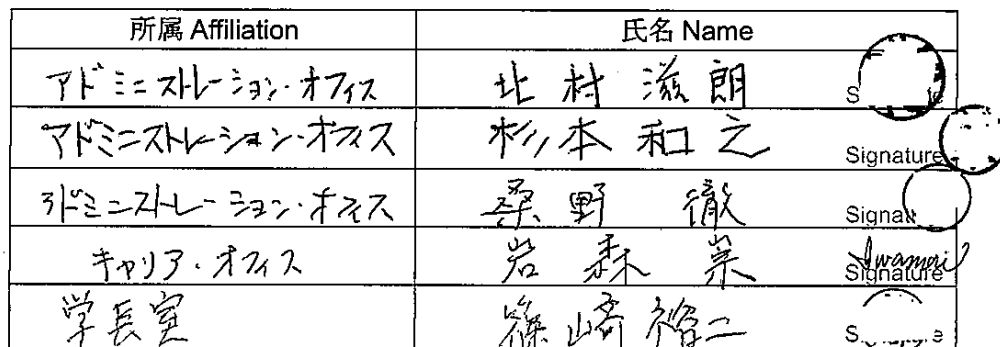 所属 Affiliation 氏名 Name
アドミニストレーション・オフィス 北村 滋朗
アドミニストレーション・オフィス 杉本 和之 Signature
アドミニストレーション・オフィス 桑野 徹
キャリア・オフィス 岩森 崇 Iwamori Signature
学長室 篠崎 裕二